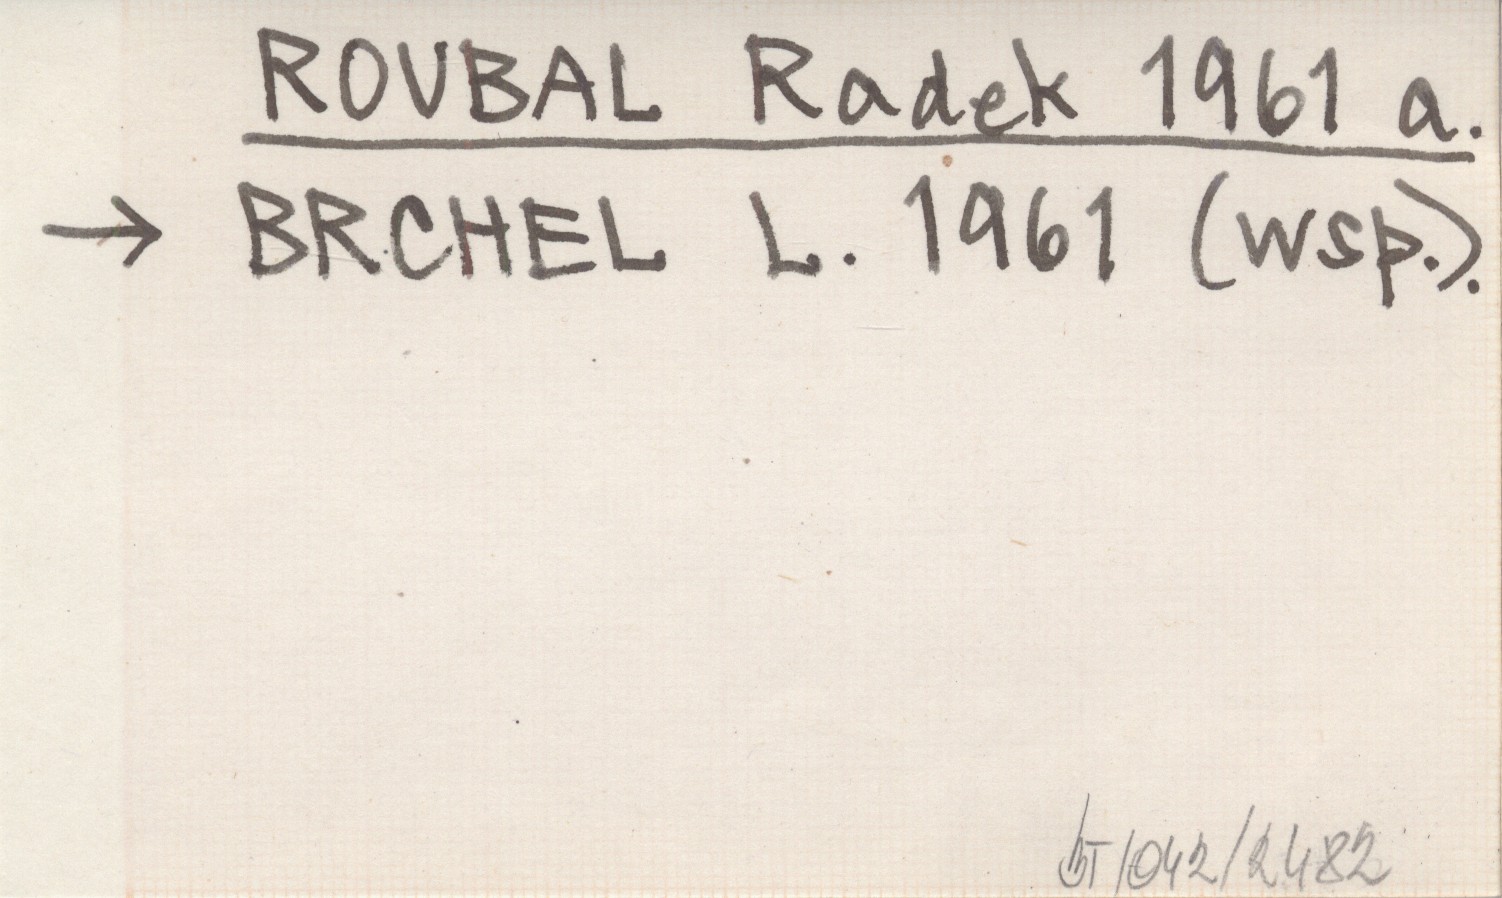 ROUBAL Radek 1961 a.
→ BRCHEL L. 1961 (wsp.).
/042/2482